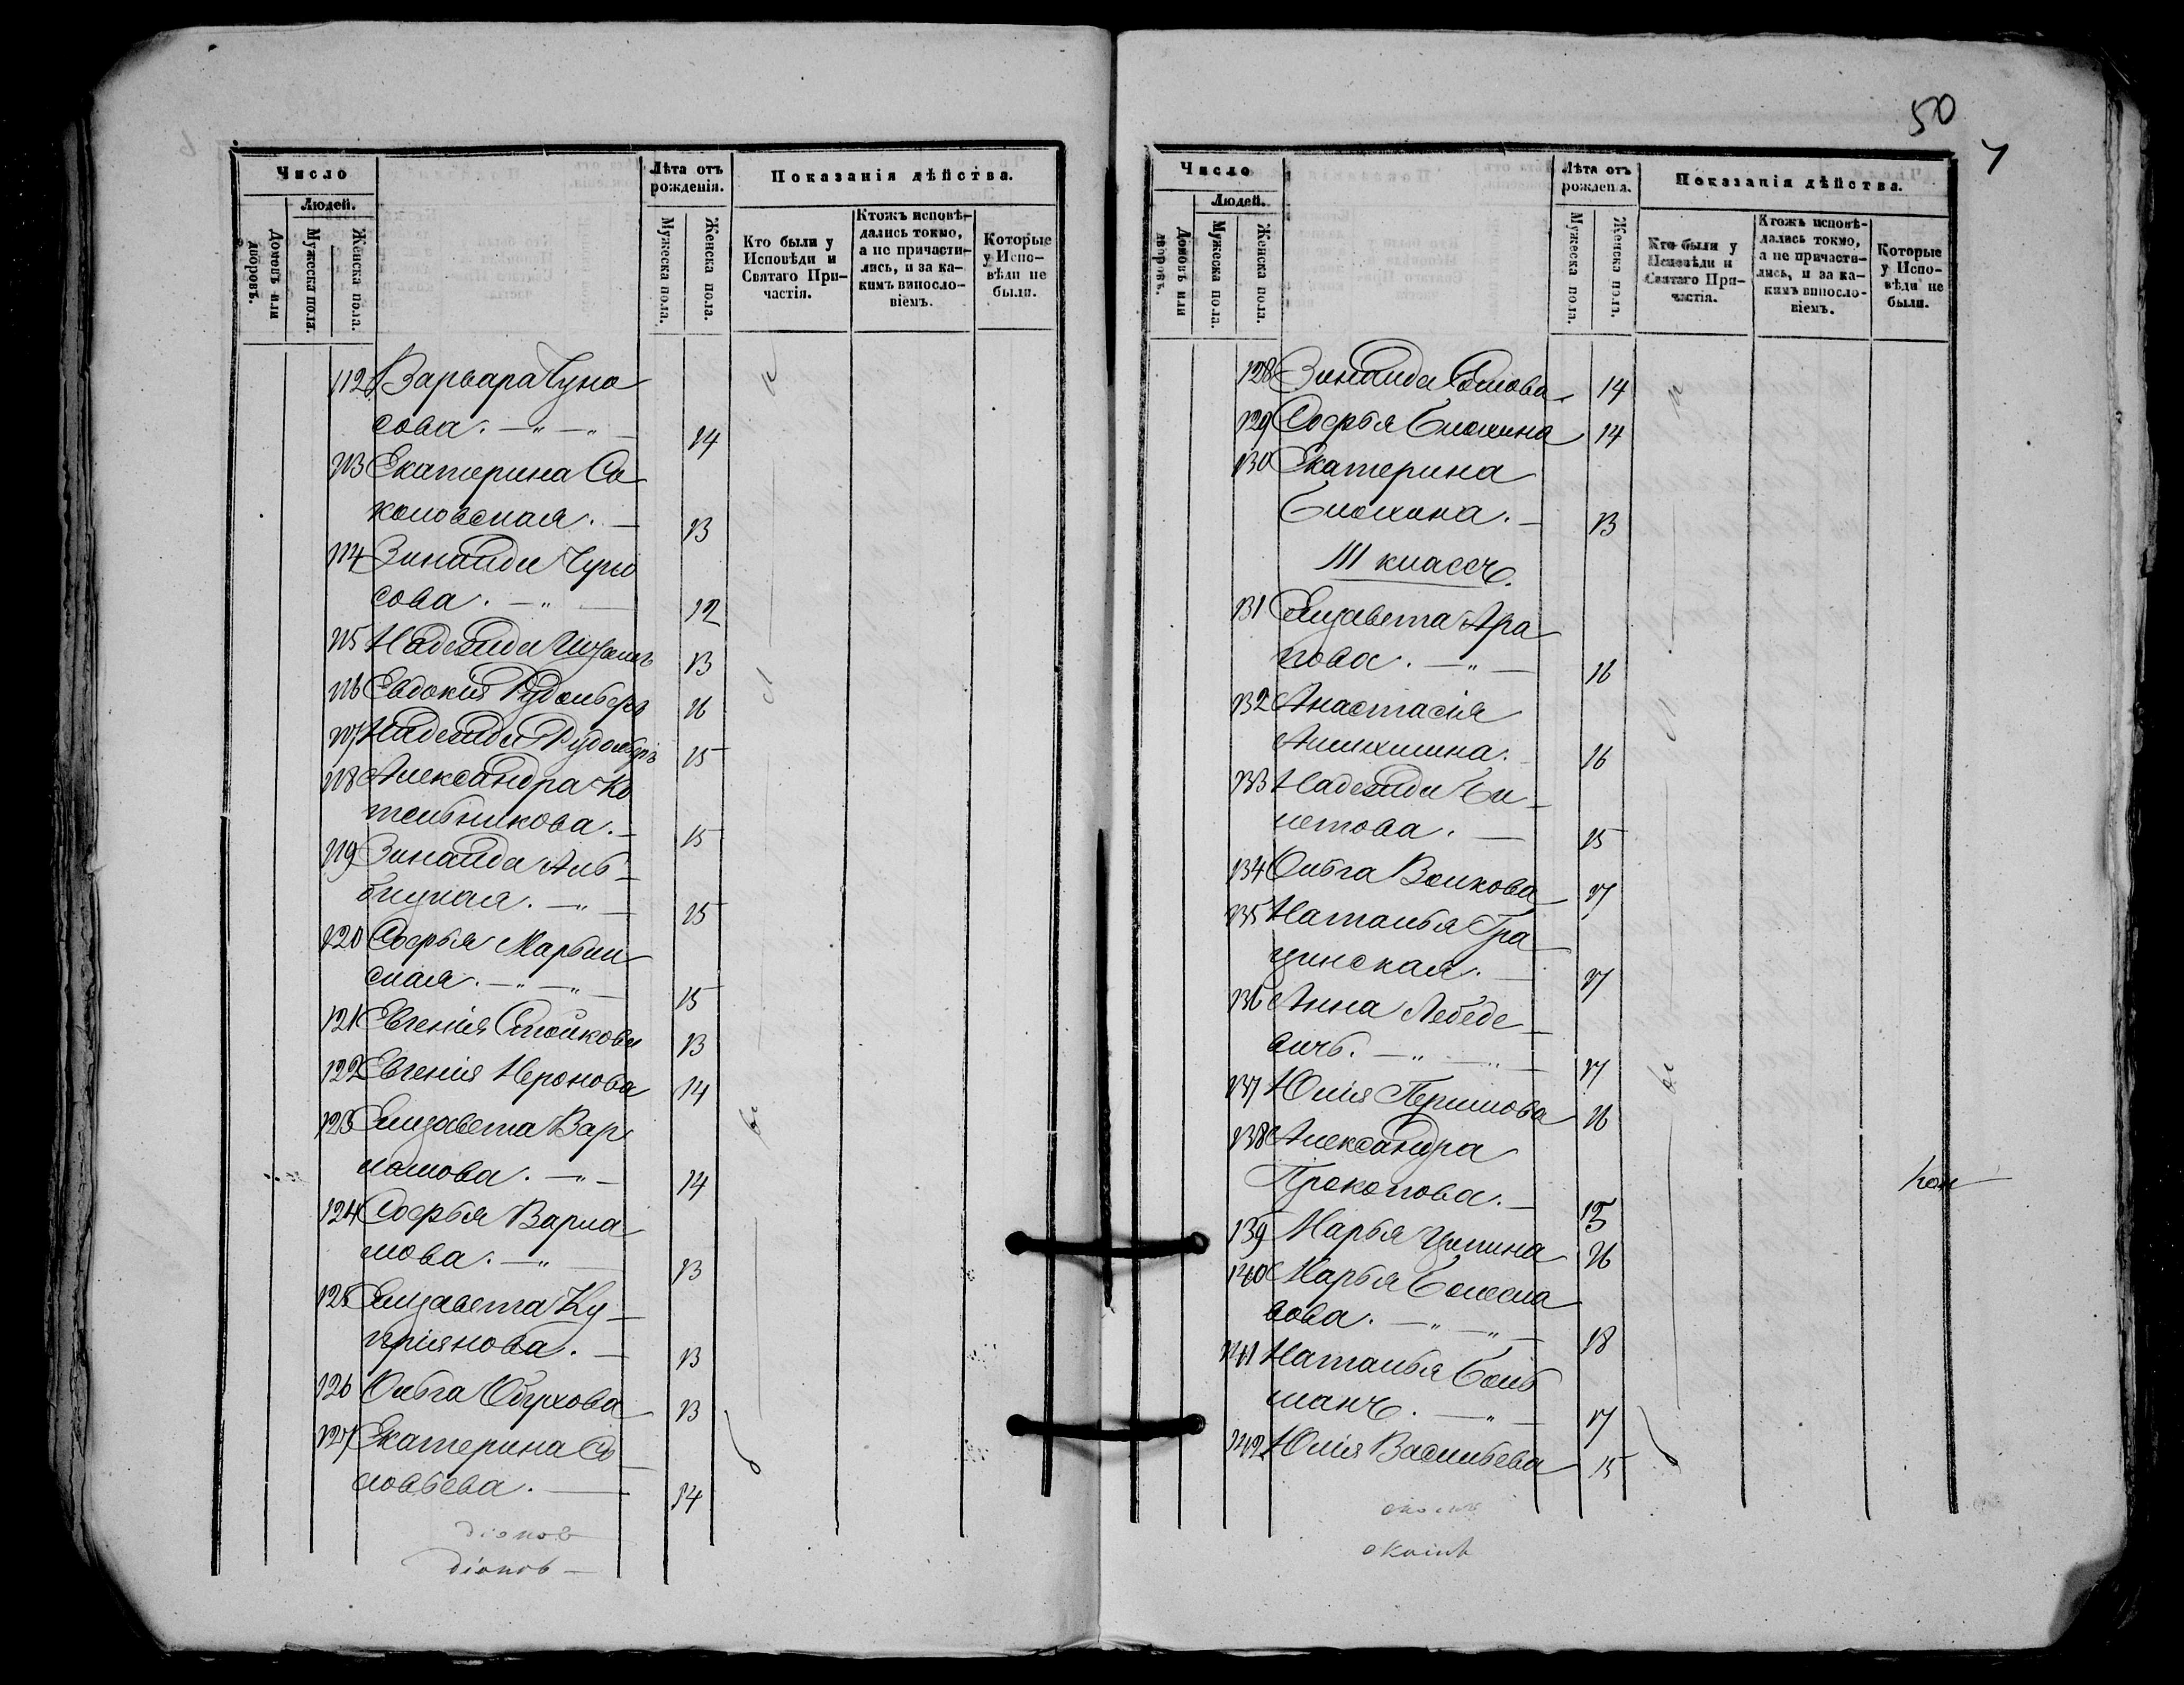 Число
Людей.
Домовъ или дворовъ.
Мужеска пола.
Женска пола.
Лѣта отъ рожденія.
Мужеска пола.
Женска пола.
Показанія дѣйства.
Кто были у Исповѣди и Святаго При-частія.
Ктожъ исповѣ-дались токмо, а не причасти-лись, и за ка-кимъ винословіемъ.
Которые у Испо-вѣди не были.
112 Варвара Чуно
сова. 14
113 Екатерина Со
коловская. 13
114 Зинаида Чуно
сова. 12
115 Надежда 13
116 Евдокія Рудольфъ 16
117 Надежда Рудольфъ 15
118 Александра Ко
тельникова. 15
119 Зинаида Аль-
бицкая. 15
120 Софья Марьин
ская. 15
121 Евгенія Стойкова 13
122 Евгенія Неронова 14
123 Елизавета Вар
ламова. 14
124 Софья Варла
мова. 13
125 Елизавета Ку-
пріянова. 13
126 Ольга Обухова 13
127 Екатерина Со
ловьева. 14
діонов
діонов
50
7
Число
Людей.
Домовъ или дворовъ.
Мужеска пола.
Женска пола.
Лѣта отъ рожденія.
Мужеска пола.
Женска пола.
Показанія дѣйства.
Кто были у Исповѣди и Святаго При-частія.
Ктожъ исповѣ-дались токмо, а не причасти-лись, и за ка-кимъ винословіемъ.
Которые у Испо-вѣди не были.
128 Зинаида Сомова 14
129 Софья Блохина 14
130 Екатерина
Блохина. 13
III классъ.
131 Елизавета Ара
пова. 16
132 Анастасія
16
133 Надежда Би-
метова. 15
134 Ольга Волкова 17
135 Наталья Гра
цинская. 17
136 Анна Лебеде
вичъ. 17
137 Юлія 16
138 Александра
Прокопова. 15
139 Марья Цыпина 16
140 Марья Болесла
вова. 18
141 Наталья Боль
манъ. 17
142 Юлія Васильева 15